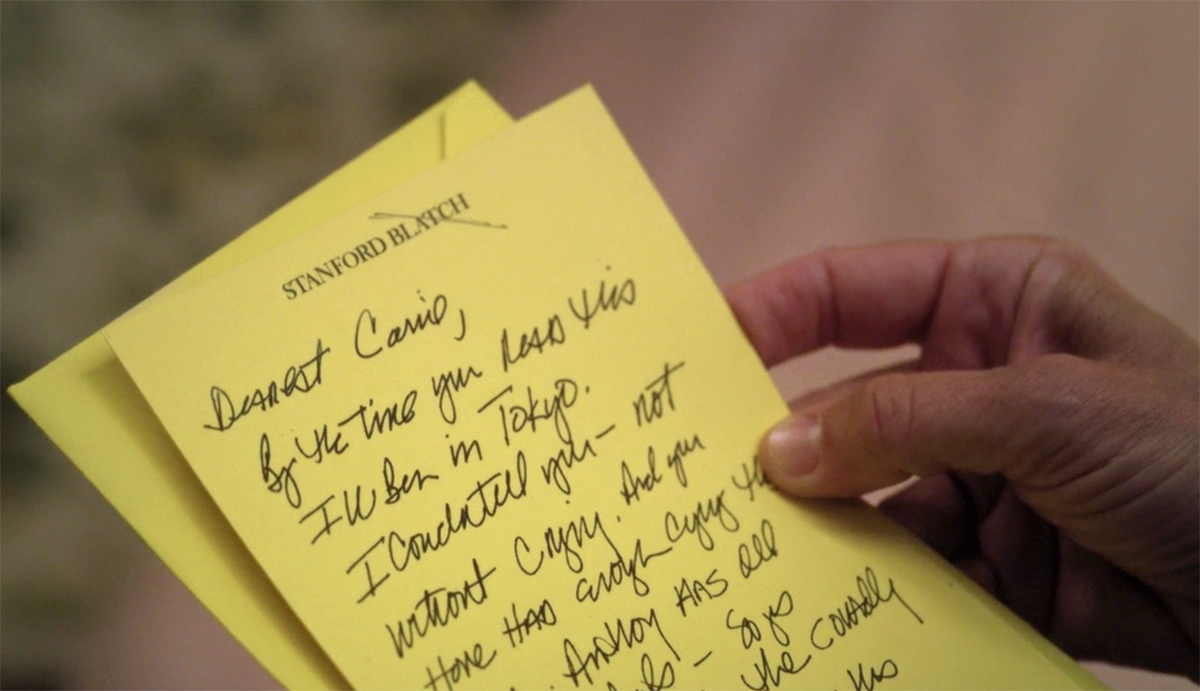 STANFORD BLATCH
Dearest Carrie,
By the time you read this
I'll Be in Tokyo.
I Couldn't tell you - not
without Crying. And you
Have HAD enough crying the
Anthony HAS all
- So yes
the Cowardly
this